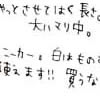 やっとさせてはく長さ
大ハマり中。
ニーカーも白はもの
使えます!! 買うな